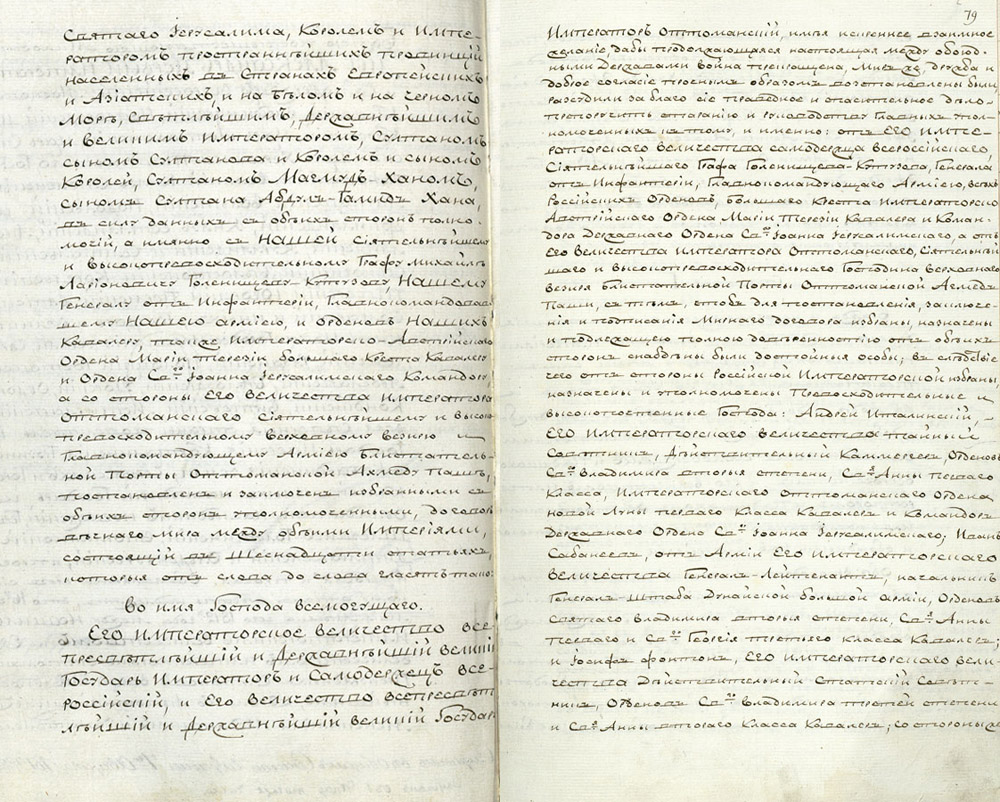 Святаго Іерусалима, Королемъ и Импе-
раторомъ пространнѣйшихъ провинцій
населенныхъ въ Странахъ Европейскихъ
и Азіатскихъ и на бѣломъ и на черномъ
Морѣ, Свѣтлѣйшимъ, Державнѣйшимъ
и Великимъ Императоромъ, Султаномъ
сыномъ Султанова и Королемъ и сыномъ
Королей, Султаномъ Магмудъ Ханомъ,
сыномъ Султана Абдулъ-Гамидъ Хана,
въ силу данныхъ съ обѣихъ сторонъ полно-
мочій, а имянно съ НАШЕЙ Сіятельнѣйшему
и Высокопревосходительному Графу Михайлѣ
Ларіоновичу Голенищеву Кутузову, НАШЕМУ
Генералу отъ Инфантеріи, Главнокомандовав-
шему НАШЕЮ арміею, и Орденовъ НАШИХЪ
Кавалеру, также Императорско-Австрійскаго
Ордена Маріи Терезіи большаго Креста Кавалеру
и Ордена Свтаго Іоанна Іерусалимскаго Командору,
а со стороны Его Величества Императора
Оттоманскаго Сіятельнѣйшему и Высоко
превосходительному Верховному Везирю и
Главнокомандующему Арміею блистатель-
ной Порты Оттоманской Ахмеду Пашѣ,
постановленъ и заключенъ избранными съ
обѣихъ сторонъ уполномоченными, договоръ
вѣчнаго мира между обѣими Имперіями,
состоящій въ Шеснадцати статьяхъ,
которыя отъ слова до слова гласятъ тако:
Во имя Господа всемогущаго.
ЕГО ИМПЕРАТОРСКОЕ ВЕЛИЧЕСТВО Все-
пресвѣтлѣйшій и Державнѣйшій Великій
Государь Императоръ и Самодержецъ Все-
россійскій, и Его Величество Всепресвѣт
лѣйшій и Державнѣйшій Великій Государь
79
Императоръ Оттоманскій, имѣя искреннее взаимное
желаніе, дабы продолжающаяся настоящая между обоюд-
ными Державами война прекращена, Миръ же, дружба и
доброе согласіе прочнымъ образомъ возстановлены были,
разсудили за благо сіе праведное и спасительное дѣло
препоручить старанію и руководству Главныхъ упол-
номоченныхъ къ тому, и именно: отъ ЕГО ИМПЕ-
РАТОРСКАГО ВЕЛИЧЕСТВА самодержца Всероссійскаго,
Сіятельнѣйшаго Графа Голенищева-Кутузова, Генерала
отъ Инфантеріи, Главнокомандующаго Арміею, всѣхъ
Россійскихъ Орденовъ, большаго Креста Императорско
Австрійскаго Ордена Маріи Терезіи Кавалера и Коман-
дора Державнаго Ордена Свтаго Іоанна Іерусалимскаго, а отъ
Его Величества Императора Оттоманскаго, Сіятельнѣй
шаго и Высокопревосходительнаго Господина Верховнаго
Везиря блистательной Порты Оттоманской Ахмедъ
Паши, съ тѣмъ, чтобъ для постановленія, заключе-
нія и подписанія Мирнаго договора избраны, назначены
и надлежащею полною довѣренностію отъ обѣихъ
сторонъ снабдѣны были достойныя особы; въ слѣдствіе
чего отъ стороны Россійской Императорской избраны,
назначены и уполномочены Превосходительные и
высокопочтенные Господа: Андрей Италинскій,
ЕГО ИМПЕРАТОРСКАГО ВЕЛИЧЕСТВА тайный
Совѣтникъ, Дѣйствительный Каммергеръ, Орденовъ
Свтаго Владимира вторыя степени, Свтыя Анны перваго
Класса, Императорскаго Оттоманскаго Ордена
новой Луны перваго Класса Кавалеръ и Командоръ
Державнаго Ордена Свтаго Іоанна Іерусалимскаго; Иванъ
Сабанеевъ, отъ Арміи ЕГО ИМПЕРАТОРСКАГО
ВЕЛИЧЕСТВА Генералъ-Лейтенантъ, начальникъ
Генералъ-Штаба Дунайской большой арміи, Орденовъ
Святаго Владимира вторыя степени, Свтыя Анны
перваго и Свтаго Георгія третьяго класса Кавалеръ;
и Іосифъ Фонтонъ, ЕГО ИМПЕРАТОРСКАГО ВЕЛИ-
ЧЕСТВА Дѣйствительный Статскій Совѣт-
никъ, Орденовъ Свтаго Владимира третей степени
и Свтыя Анны втораго Класса Кавалеръ; со стороны же